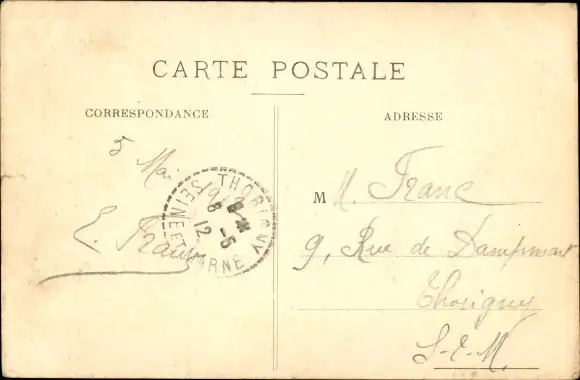 CARTE POSTALE
CORRESPONDANCE
ADRESSE
5 Mai
THORIGNY
SEINE ET MARNE
8
6 -5
12
L. Franc
M M. Franc
9, Rue de Dampmart
Thorigny
S-E-M.